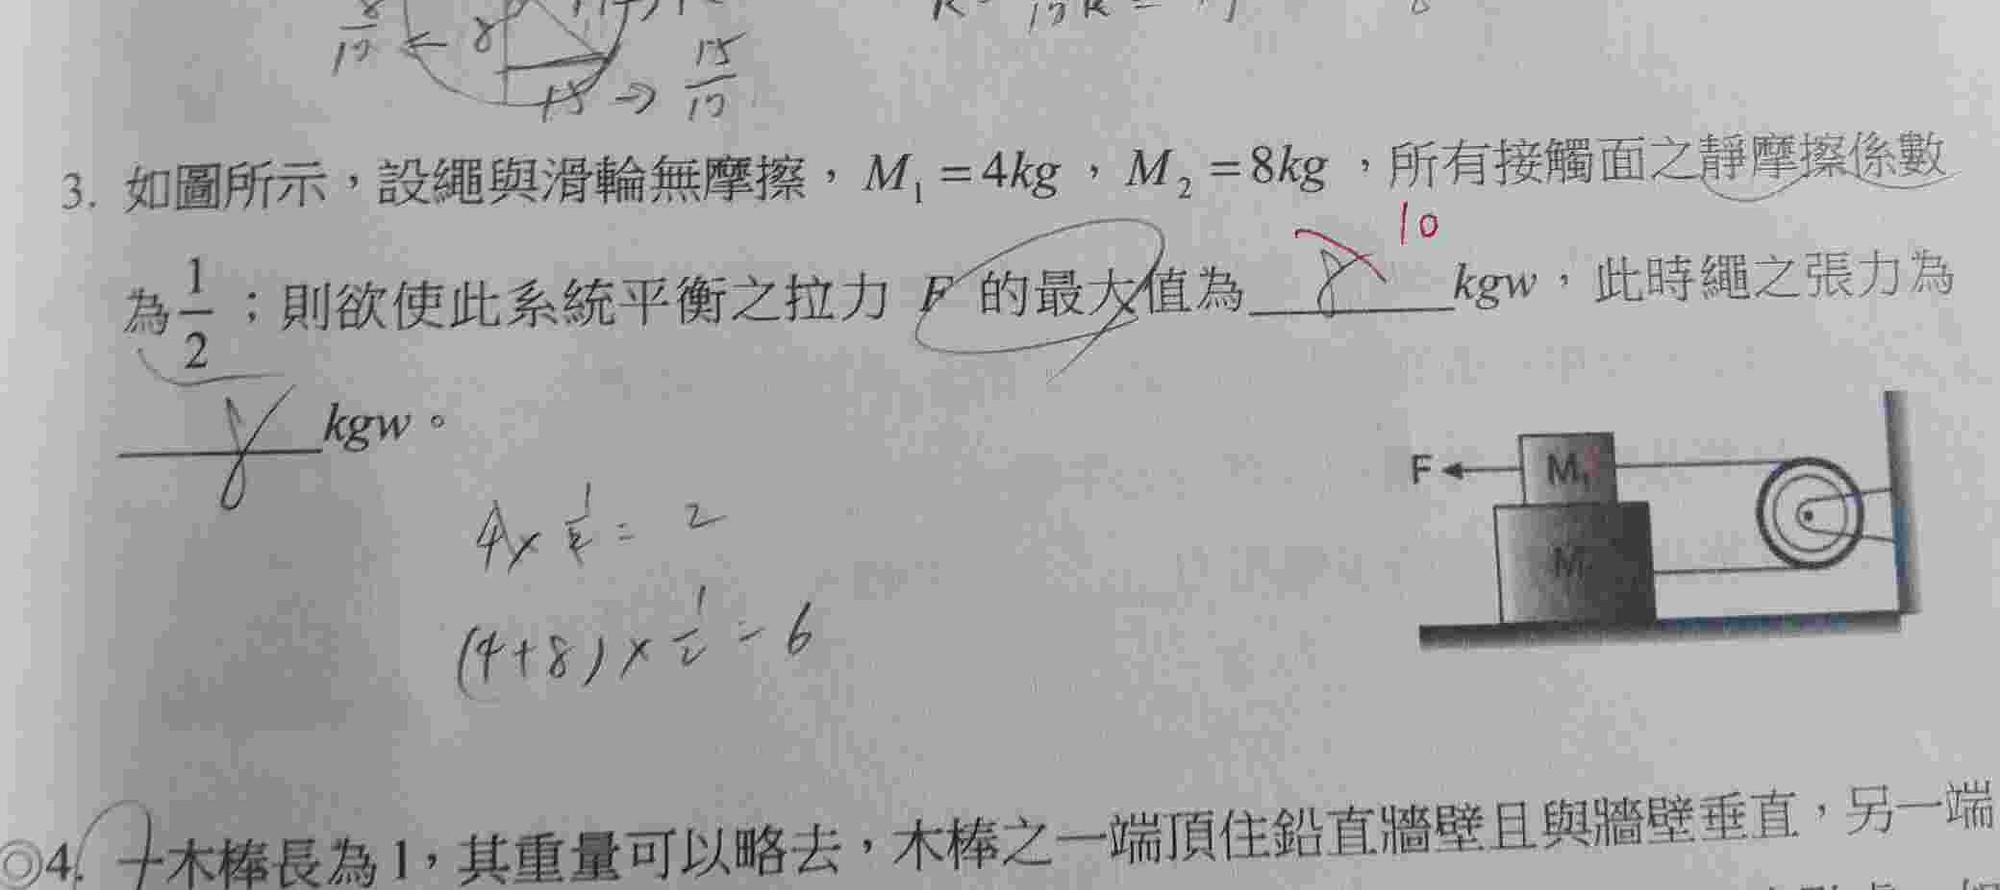 8/17 ← 8
15 → 15/17
3. 如圖所示，設繩與滑輪無摩擦，M₁ = 4kg，M₂ = 8kg，所有接觸面之靜摩擦係數
為 1/2；則欲使此系統平衡之拉力 F 的最大值為 8 10 kgw，此時繩之張力為
8 kgw。
F M₁
M
4 × 1/2 = 2
(4+8) × 1/2 = 6
◎4. 一木棒長為1，其重量可以略去，木棒之一端頂住鉛直牆壁且與牆壁垂直，另一端